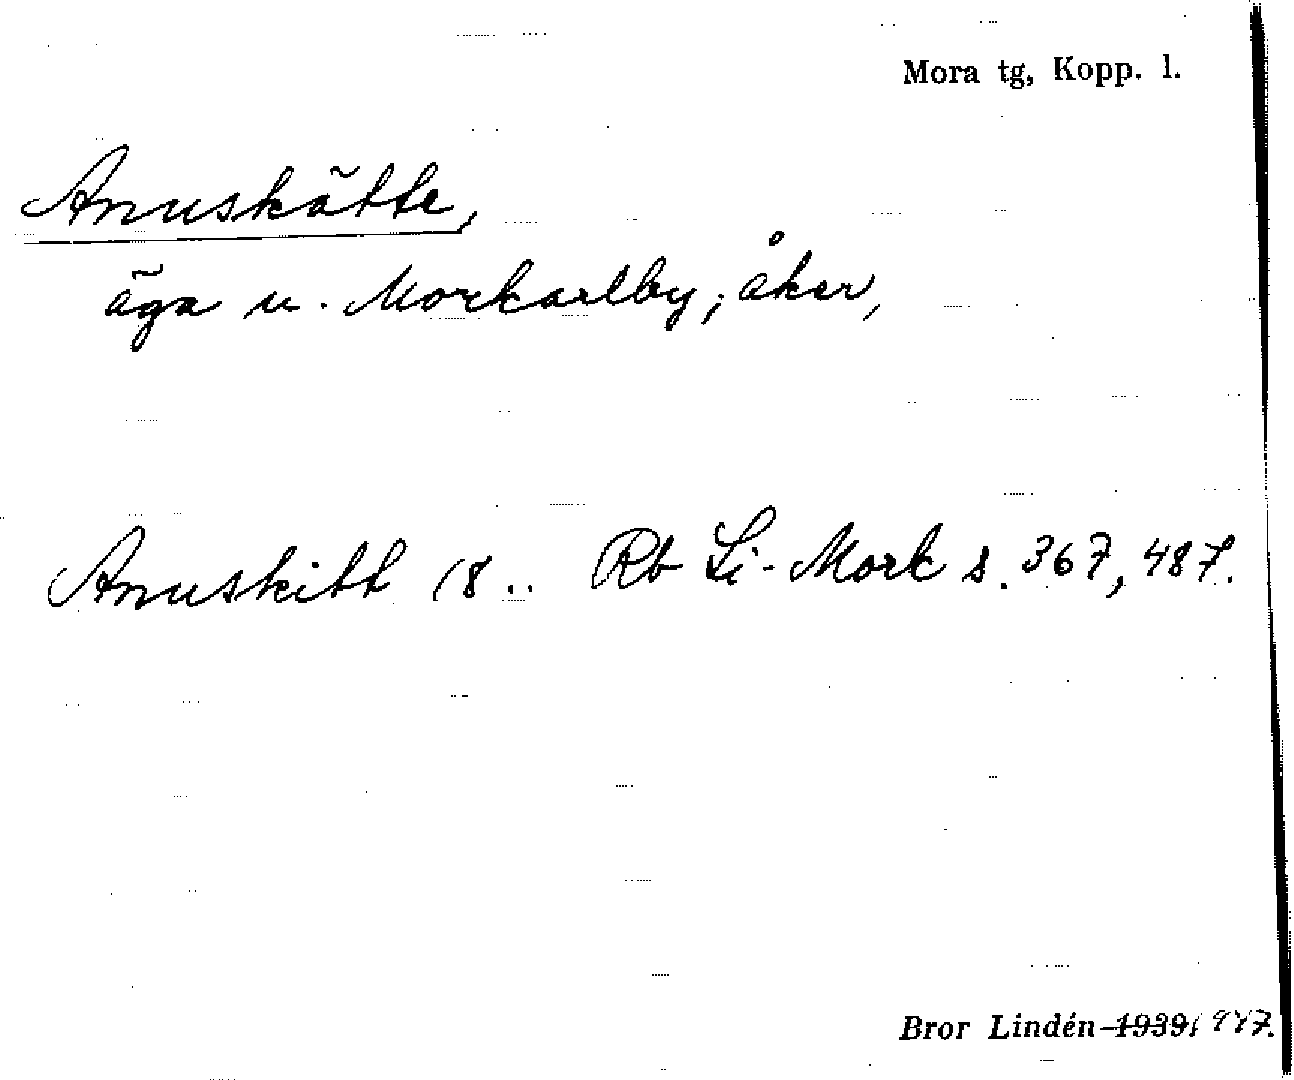 Mora tg, Kopp. l.
Anuskätte,
äga u. Morkarlby; åker,
Anuskitt 18.. Rb Li-Mork s. 367, 487.
Bror Lindén 1939 1947.